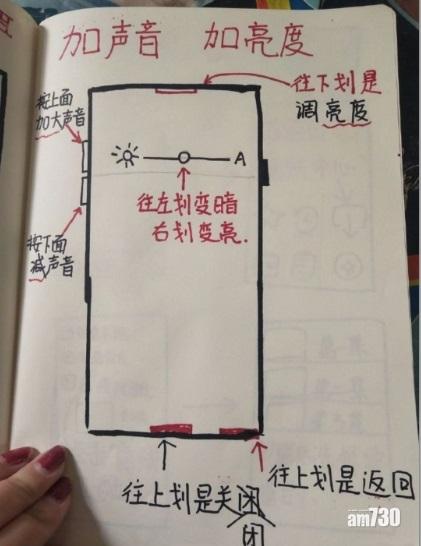 加声音 加亮度
往下划是
调亮度
按上面
加大声音
A
往左划变暗
右划变亮.
按下面
减声音
往上划是返回
往上划是关闲
闭
am730